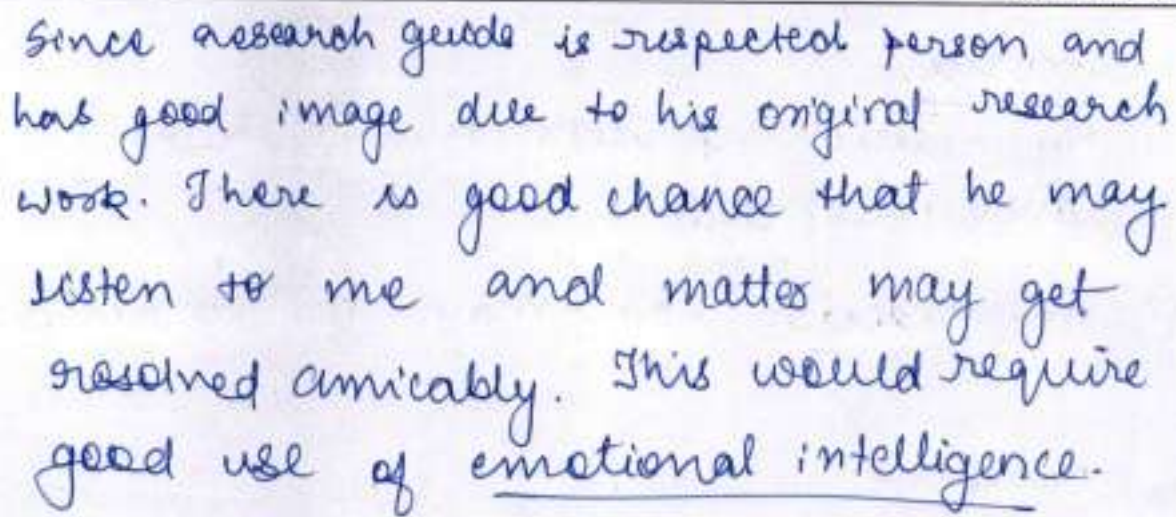 Since research guide is respected person and
has good image due to his original research
work. There is good chance that he may
listen to me and matter may get
resolved amicably. This would require
good use of emotional intelligence.